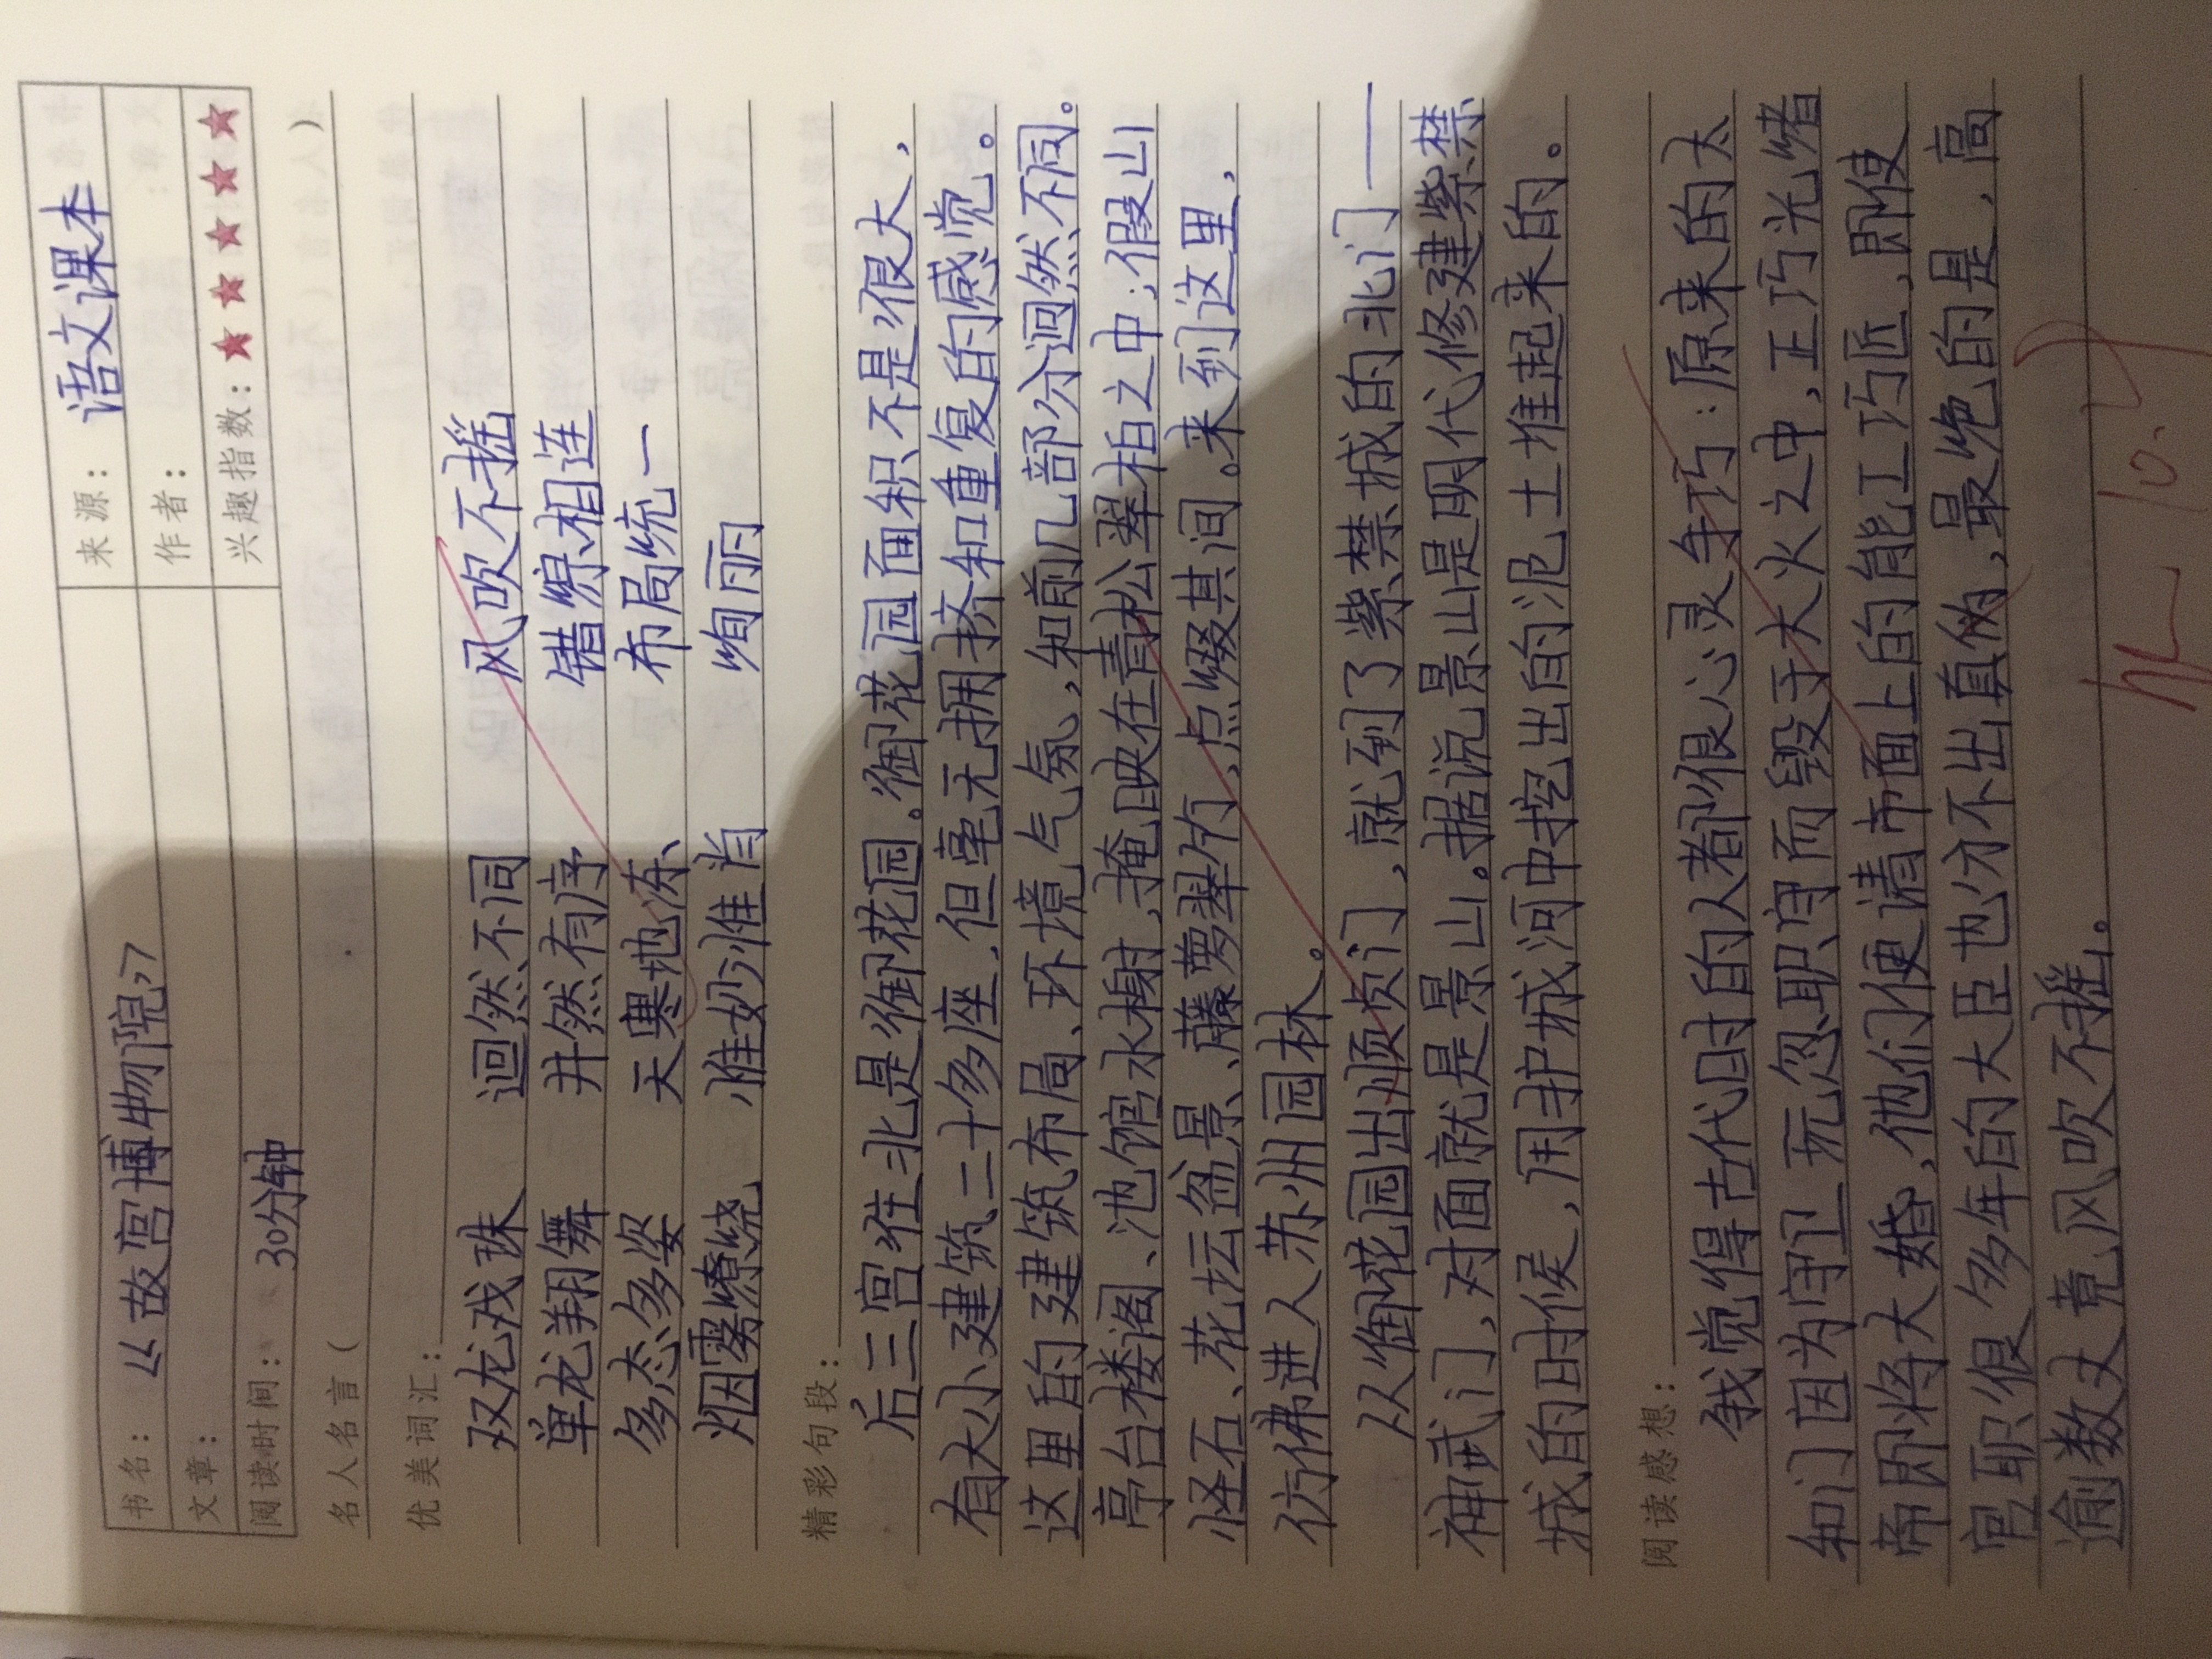 书名：《故宫博物院》 来源：语文课本
文章： 作者：
阅读时间：30分钟 兴趣指数：★★★★★
名人名言（ ）
优美词汇：
双龙戏珠 迴然不同 风吹不摇
单龙翔舞 井然有序 错综相连
多态多姿 天寒地冻 布局统一
烟雾缭绕 惟妙惟肖 绚丽
精彩句段：
后三宫往北是御花园。御花园面积不是很大，
有大小建筑二十多座，但毫无拥挤和重复的感觉。
这里的建筑布局、环境气氛，和前几部分迥然不同。
亭台楼阁、池馆水榭，掩映在青松翠柏之中；假山
怪石、花坛盆景、藤萝翠竹，点缀其间。来到这里，
仿佛进入苏州园林。
从御花园出顺贞门，就到了紫禁城的北门——
神武门，对面就是景山。据说景山是明代修建紫禁
城的时候，用护城河中挖出的泥土堆起来的。
阅读感想：
我觉得古代时的人都很心灵手巧：原来的太
和门因为守卫玩忽职守而毁于大火之中，正巧光绪
帝即将大婚，他们便请市面上的能工巧匠，即使
官职很多年的大臣也分不出真伪，最绝的是，高
逾数丈竟风吹不摇。
10.